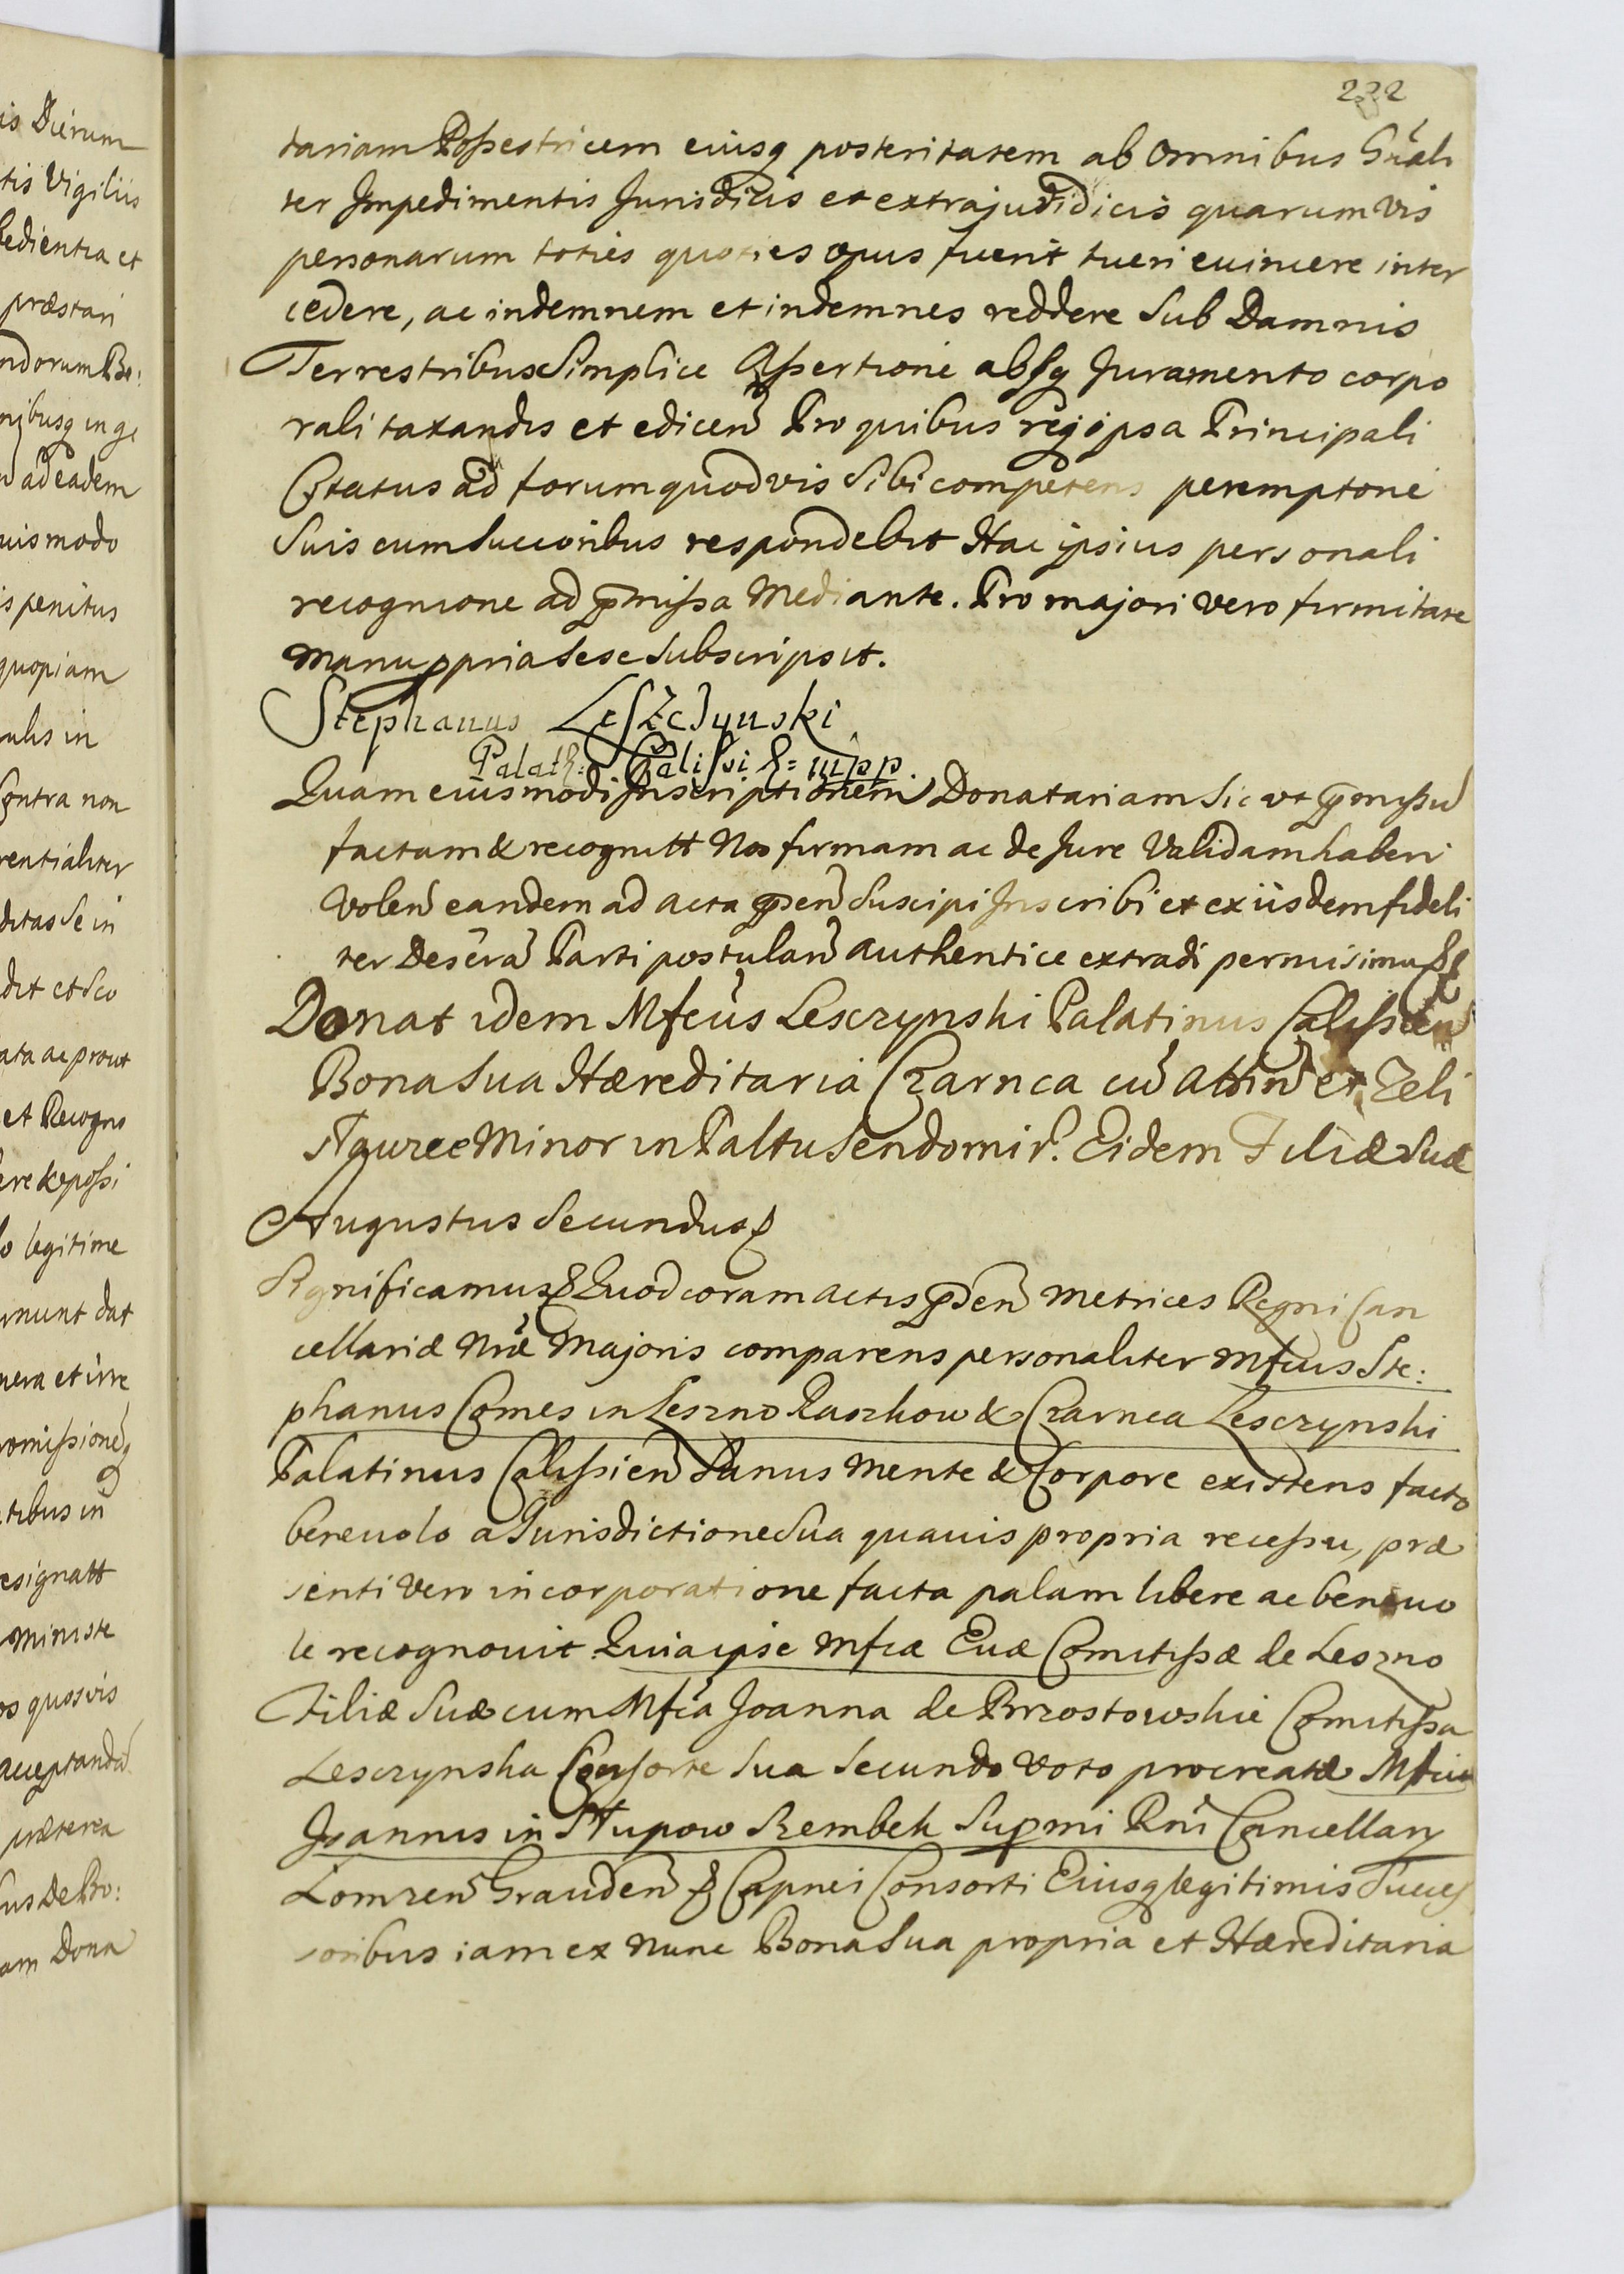 is Dierum
tis Vigiliis
bedientia et
præstari
ndorum Bo:
nibusq in ge
ad eadem
uismodo
is penitus
quopiam
ulis in
Contra non
rentialiter
ditas se in
dit et sco
ata ac prout
et Recogno
ere & possi
lo legitime
rnunt dat
nera et irre
romissioneq
tibus in
esignatt
Ministe
os quosvis
acceptandu
præterea
sus De Bo:
am Dona
222
tariam Possestricem eiusq posteritatem ab Omnibus Gñali
ter Impedimentis Jurisdicis et extrajudidicis quarumvis
personarum toties quoties opus fuerit tueri evincere inter
cedere, ac indemnem et indemnes reddere Sub Damnis
Terrestribus Simplice Assertione absq Juramento corpo
rali taxandis et edicen Pro quibus reg ipsa Principali
Citatus ad forum quodvis Sibi competens peremptorie
Suis cum Succoribus respondebit Hac ipsius personali
recognicione ad pmissa Mediante. Pro majori vero firmitate
manu ppria sese Subscripsit.
Stephanus Leszczynski
Palat: Calissi: mpp.
Quam eiusmodi Inscriptionem Donatariam Sic ut pmissu
factam & recognitt Nos firmam ac de Jure Validam haberi
Volen eandem ad acta pñen Suscipi Inscribi et ex iisdem fideli
ter Descra Parti postulan authentice extradi permisimus &
Donat idem Mfcus Lesczynski Palatinus Calissien
Bona Sua Hæreditaria Czarnca cu attin et Zeli
stawice Minor in Paltu Sendomir. Eidem Filiæ Suæ
Augustus Secundus &
Significamus & Quod coram actis pñen Metrices Regni Can
cellariæ Nræ Majoris comparens personaliter Mfcus Ste:
phanus Comes in Leszno Raszkow & Czarnca Lesczynski
Palatinus Calissien Sanus Mente & Corpore existens facto
benevolo a Jurisdictione Sua quavis propria recessu, præ
senti Vero incorporatione facta palam libere ac benevo
le recognovit Quia ipse Mfcæ Evæ Comitissæ de Leszno
Filiæ Suæ cum Mfca Joanna de Brzostowskie Comitissa
Lesczynska Consorte Sua Secundo Voto procreatæ Mfci
Joannis in Słupow Szembek Supmi Rni Cancellarii
Lomzen Grauden & Capnei Consorti Eiusq legitimis Succes
soribus iam ex nunc Bona Sua propria et Hæreditaria